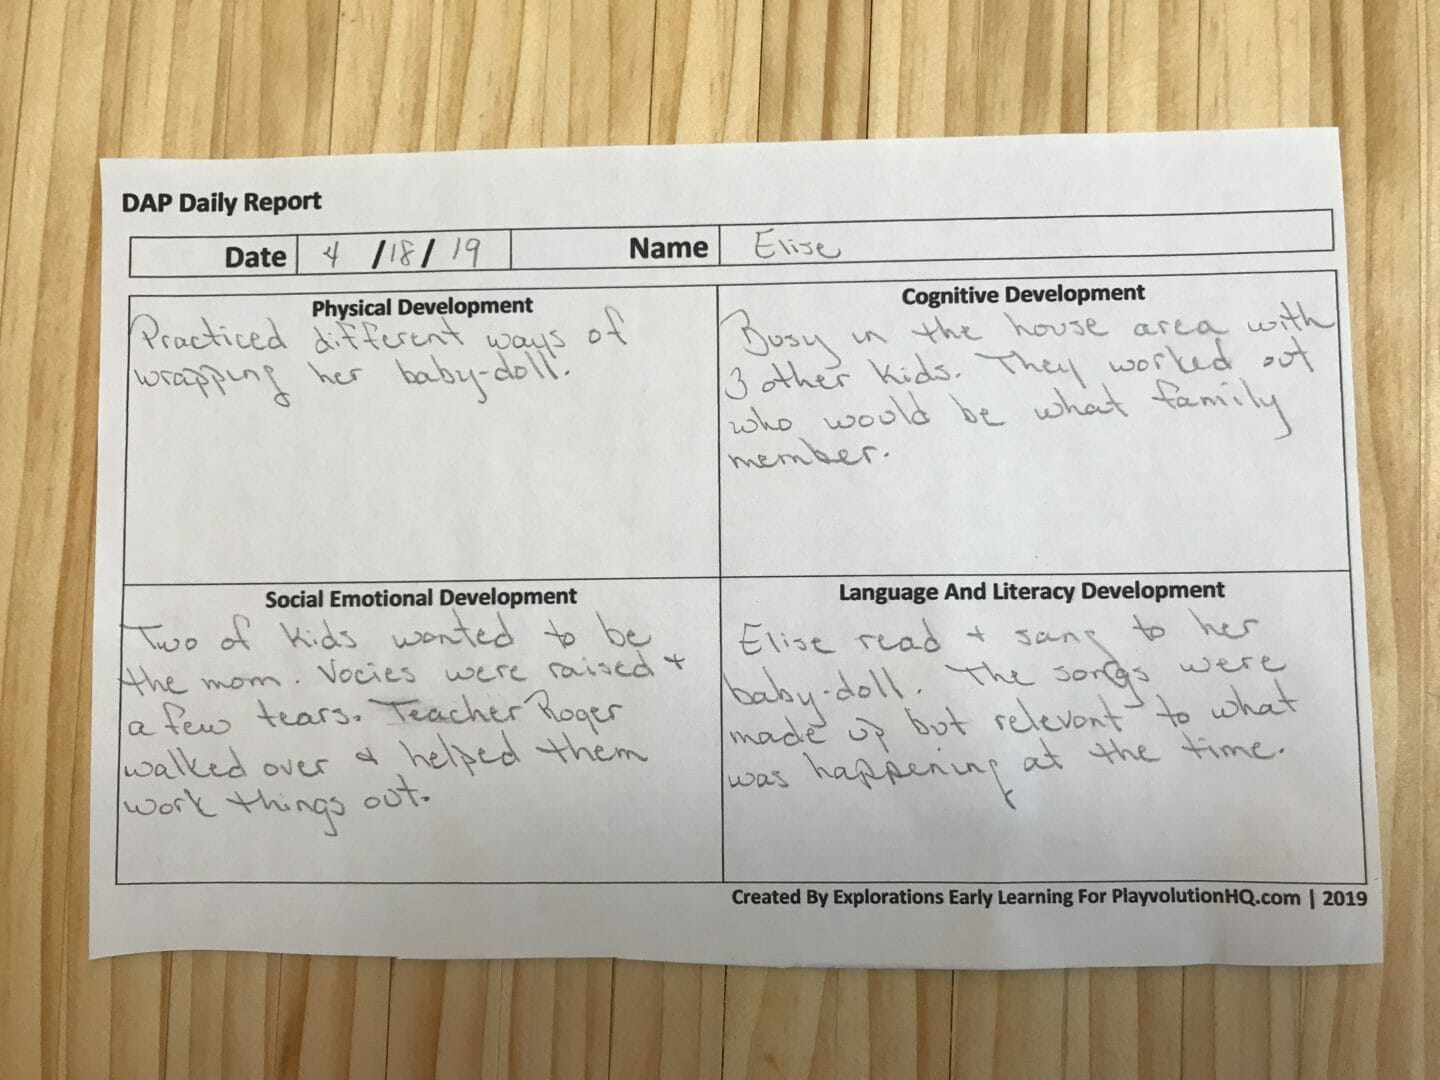 DAP Daily Report
Date 4 /18/ 19 Name Elise
Physical Development
Practiced different ways of
wrapping her baby-doll.
Cognitive Development
Busy in the house area with
3 other kids. They worked out
who would be what family
member.
Social Emotional Development
Two of kids wanted to be
the mom. Vocies were raised +
a few tears. Teacher Roger
walked over & helped them
work things out.
Language And Literacy Development
Elise read + sang to her
baby-doll. The songs were
made up but relevant to what
was happening at the time.
Created By Explorations Early Learning For PlayvolutionHQ.com | 2019